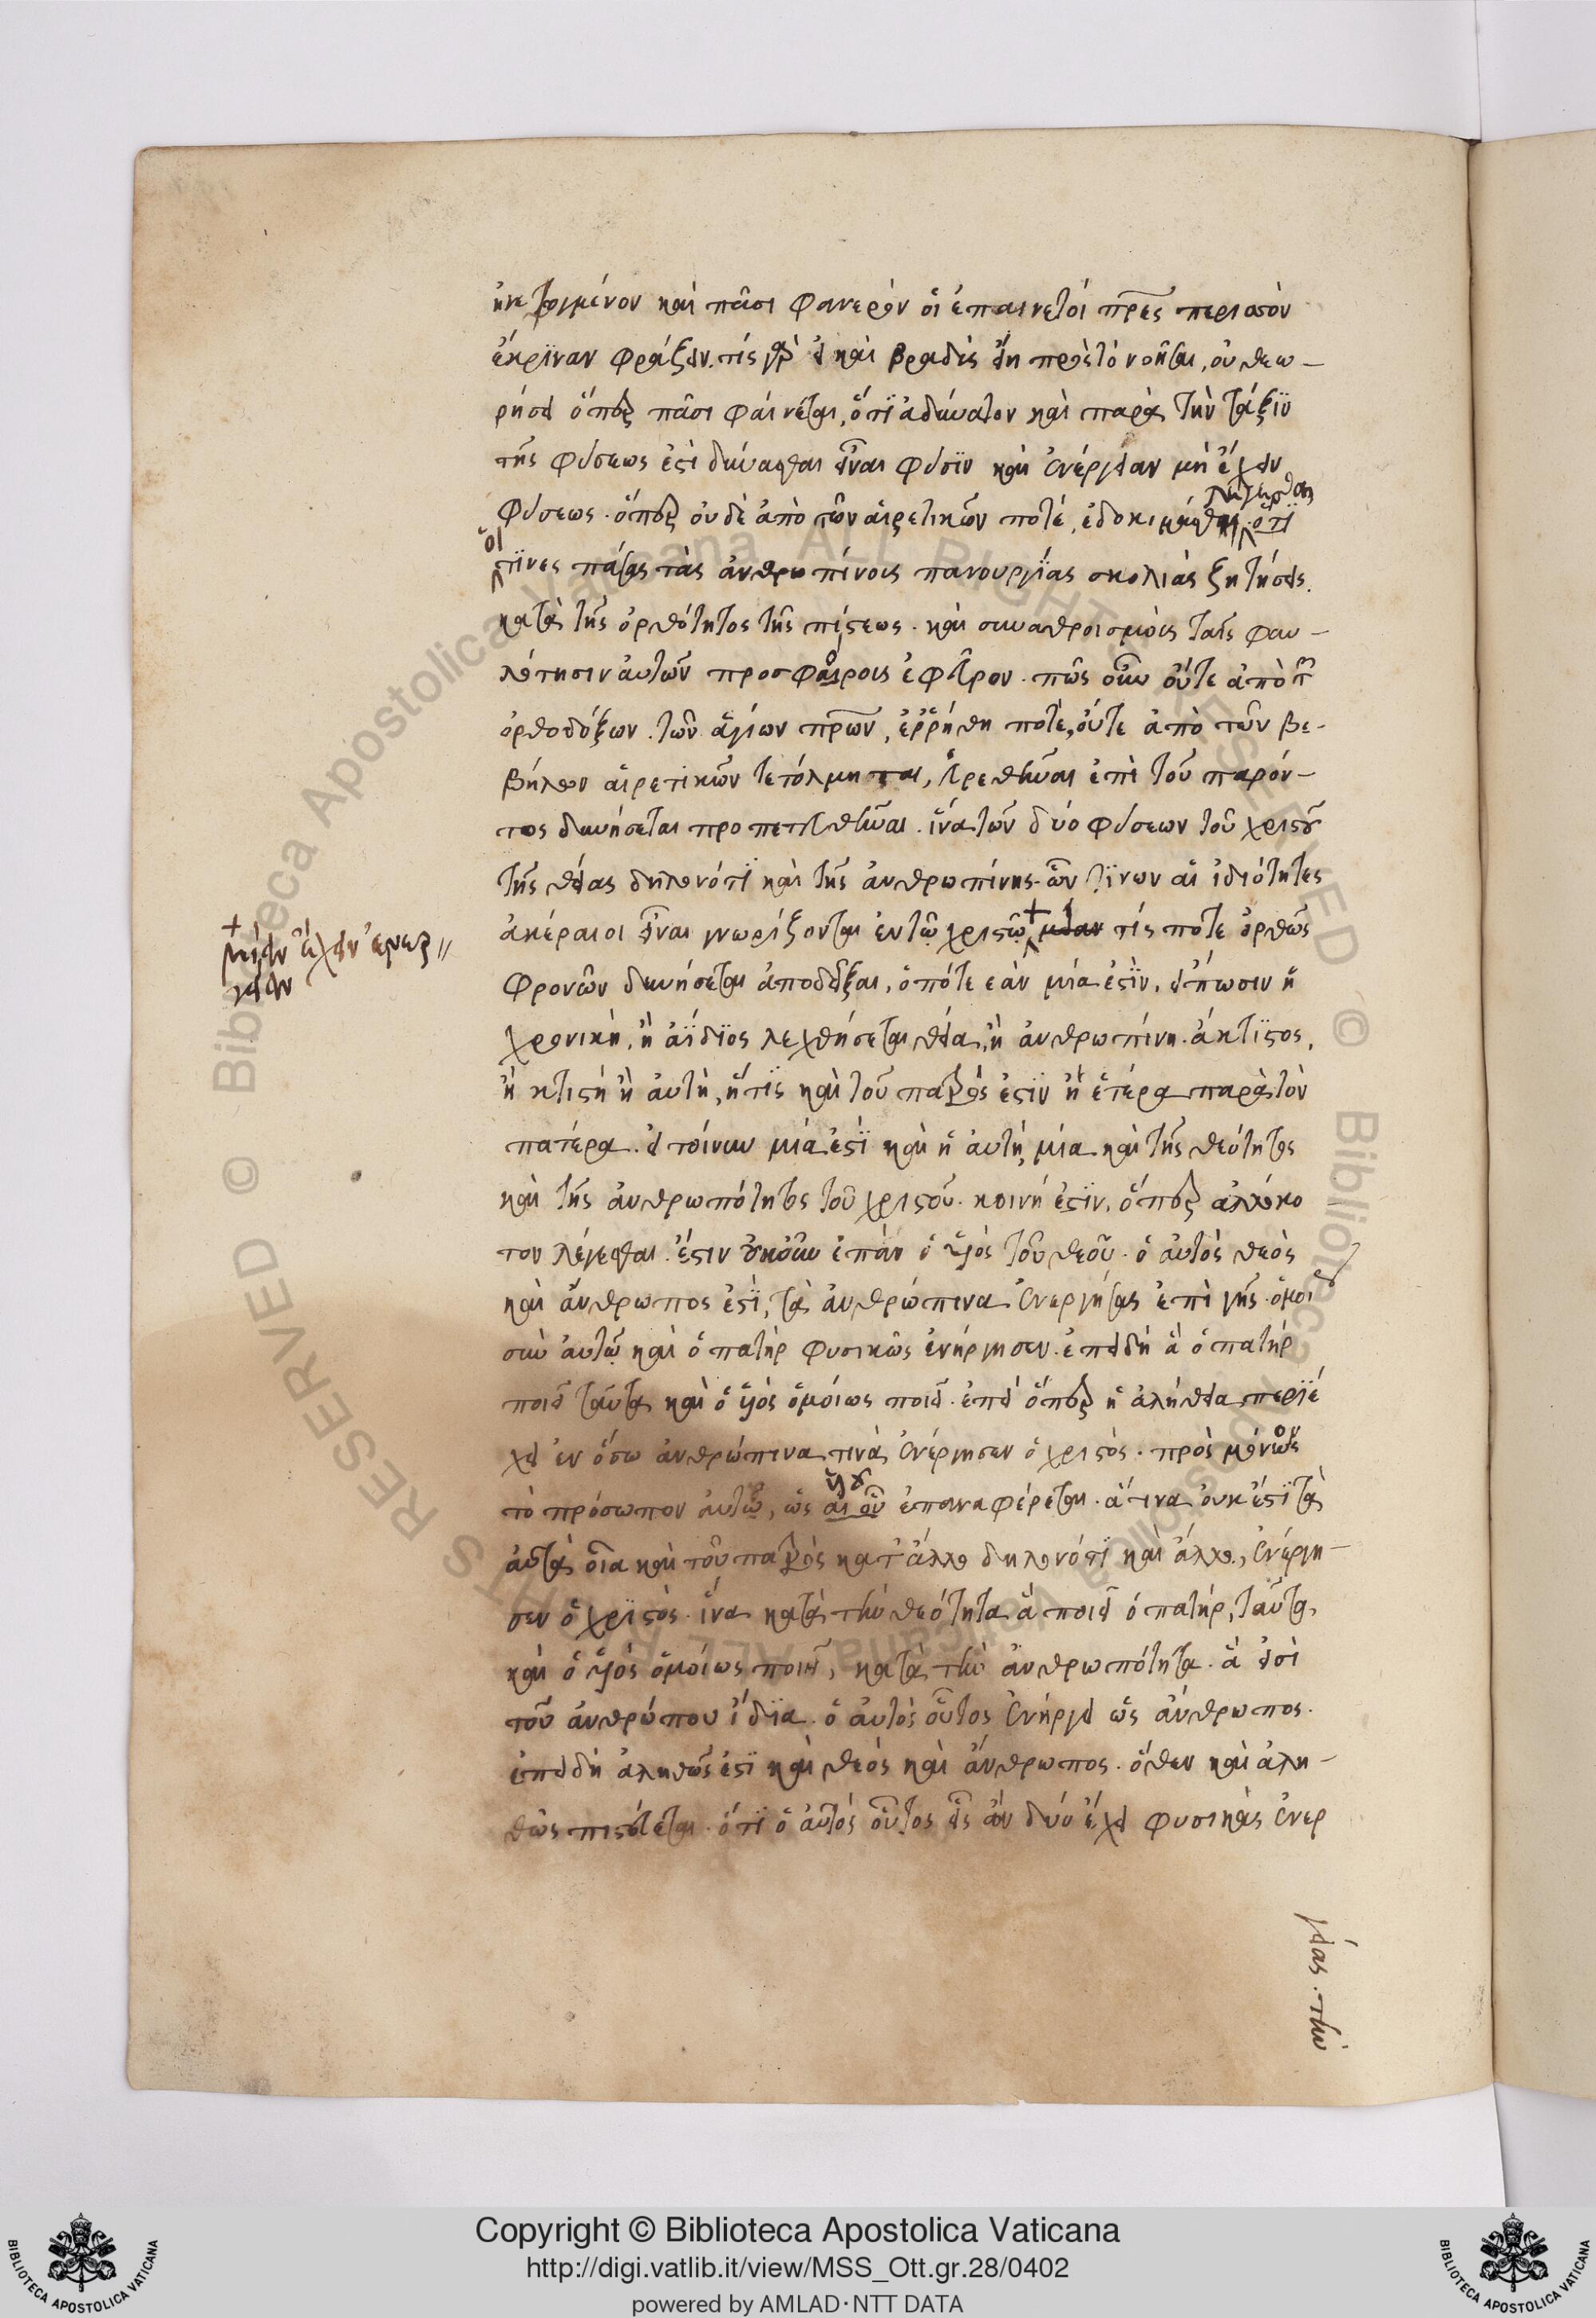 καὶ πᾶσι φανερὸν οἱ ἐπαινετοί πρ̅ες περισσὸν
ἐκρῖναν φράξειν. τίς γὰρ εἰ καὶ βραδὺς εἴη πρὸς τὸ νοῆσαι, οὐ θεω-
ρήσει ὅπερ πᾶσι φαίνεται, ὅτϊ ἀδύνατον καὶ παρὰ τὴν τάξϊν
τῆς φύσεως ἐστὶ δύνασθαι εἶναι φύσϊν καὶ ἐνέργειαν μὴ ἔχειν
φύσεως. ὅπερ οὐδὲ ἀπὸ τῶν αἱρετικῶν ποτέ, ὅτϊ
οἵ
τϊνες πάσας τὰς ἀνθρωπίνοις πανουργίας σκολιὰς ζητήσεις.
κατὰ τῆς ὀρθότητος τῆς πίστεως. καὶ συναθροισμοὶς ταῖς φαυ-
λότησιν αὐτῶν προσφόροις ἐφεῦρον. πῶς οὖν οὔτε ἀπὸ τῶν
ὀρθοδόξων τῶν ἁγίων πρ̅ων, ἐῤῥήθη ποτὲ, οὔτε ἀπὸ τῶν βε-
βήλων αἱρετικῶν τετόλμηται, εὑρεθῆναι ἐπὶ τοῦ παρόν-
τος δυνήσεται προπετευθῆναι. ἵνα τῶν δύο φύσεων τοῦ χριστοῦ
τῆς θείας δηλονότϊ καὶ τῆς ἀνθρωπίνης. ὧν τϊνων αἱ ἰδιότητες
ἀκέραιοι εἶναι γνωρίζονται ἐν τῷ χριστῷ + μίαν τίς ποτε ὀρθῶς
+ μίαν ἔχειν ἐνερ//
γειαν
φρονῶν δυνήσεται ἀποδεῖξαι, ὁπότε ἐὰν μία ἐστὶν, εἰπωσιν ἢ
χρονικὴ, ἢ ἀΐδϊος λεχθήσεται θεία, ἢ ἀνθρωπίνη. ἄκτϊστος,
ἢ κτιστὴ ἢ αὐτὴ, ἥτϊς καὶ τοῦ πατρὸς ἐστϊν ἢ ἑτέρα παρὰ τὸν
πατέρα. εἰ τοίνυν μία ἐστὶ καὶ ἡ αὐτή, μία καὶ τῆς θεότητος
καὶ τῆς ἀνθρωπότητος τοῦ χριστοῦ. κοινή ἐστϊν, ὅπερ ἀλλόκο
τον λέγεσθαι. ἔστιν οὐκοῦν ἐπὰν ὁ υἱὸς τοῦ θεοῦ. ὁ αὐτὸς θεὸς
καὶ ἄνθρωπος ἐστϊ, τὰ ἀνθρώπινα ἐνεργήσας ἐπὶ γῆς. ὁμοῦ
σὺν αὐτῷ καὶ ὁ πατὴρ φυσικῶς ἐνήργησεν. ἐπειδὴ ἃ ὁ πατὴρ
ποιεῖ ταῦτα καὶ ὁ υἱὸς ὁμοίως ποιεῖ. ἐπεὶ ὅπερ ἡ ἀλήθεια περϊέ
χει ἐν ὅσω ἀνθρώπινα τινὰ ἐνέργησεν ὁ χριστὸς. πρὸς μόνον
τὸ πρόσωπον αὐτοῦ, ὡς υἱοῦ ἐπαναφέρεται. ἅτινα οὐκ ἔστϊ τὰ
αὐτὰ οἷα καὶ τοῦ πατρὸς κατ' ἄλλο δηλονότϊ καὶ ἄλλο, ἐνέργη-
σεν ὁ χρϊστὸς. ἵνα κατὰ τὴν θεότητα ἃ ποιεῖ ὁ πατὴρ, ταῦτα
καὶ ὁ υἱὸς ὁμοίως ποιεῖ, κατὰ τὴν ἀνθρωπότητα. ἃ εἰσὶ
τοῦ ἀνθρώπου ἴδϊα. ὁ αὐτὸς οὗτος ἐνήργει ὡς ἄνθρωπος.
ἐπειδὴ ἀληθῶς ἐστϊ καὶ θεὸς καὶ ἄνθρωπος. ὅθεν καὶ ἀλη-
θῶς πιστεύεται. ὅτϊ ὁ αὐτὸς οὗτος εἷς ὢν δύο ἔχει φυσικὰς ἐνερ
γείας. τὴν
Copyright © Biblioteca Apostolica Vaticana
http://digi.vatlib.it/view/MSS_Ott.gr.28/0402
powered by AMLAD·NTT DATA